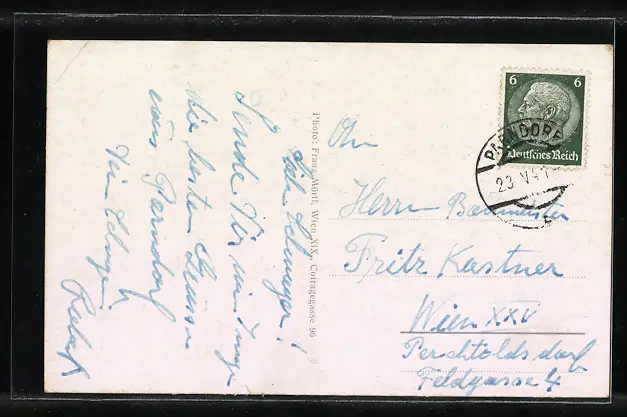 Lieber Schwager!
Sende Dir und Inge
die besten Grüsse
aus Parndorf
Dein Schwager
Rudolf
Photo: Franz Mörtl, Wien XIX., Cottagegasse 96
An
Herrn Baumeister
Fritz Kastner
Wien XXV
Perchtoldsdorf
Feldgasse 4
6 6
Deutsches Reich
PARNDORF
23. V. 41